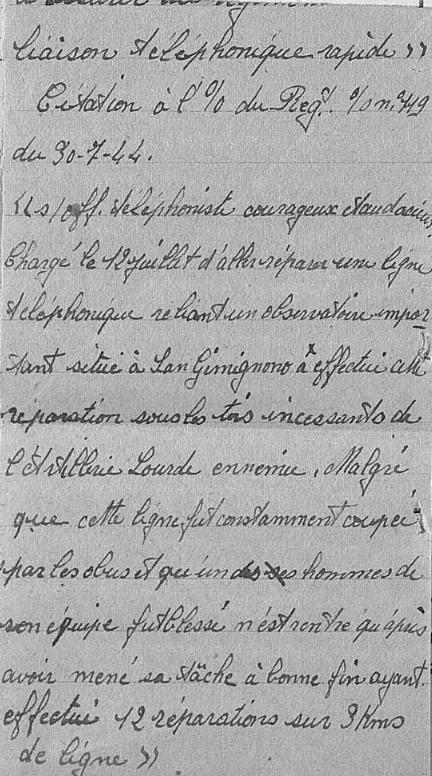 liaison téléphonique rapide »
Citation à l'% du Regt. %n:°49
du 30-7-44.
« s/off. téléphoniste courageux et audacieux,
Chargé le 12 juillet d'aller réparer une ligne
téléphonique reliant un observatoire impor
tant situé à San Gimignono à effectué cette
réparation sous les tirs incessants de
l'Artillerie Lourde ennemie, Malgré
que cette ligne fut constamment coupée
par les obus et qu'un des ses hommes de
son équipe fut blessé n'est rentré qu'après
avoir mené sa tâche à bonne fin ayant
effectué 12 réparations sur 3 Kms
de ligne »